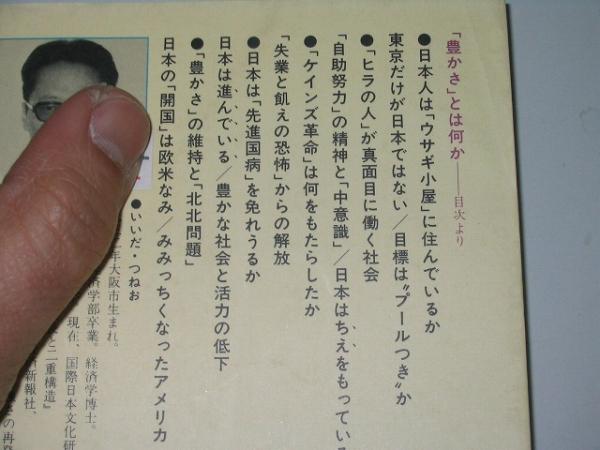 「豊かさ」とは何か――目次より
●日本人は「ウサギ小屋」に住んでいるか
東京だけが日本ではない/目標は〝プールつき〟か
●「ヒラの人」が真面目に働く社会
「自助努力」の精神と「中意識」/日本はちえをもっている
●「ケインズ革命」は何をもたらしたか
「失業と飢えの恐怖」からの解放
●日本は「先進国病」を免れうるか
日本は進んでいる/豊かな社会と活力の低下
●「豊かさ」の維持と「北北問題」
日本の「開国」は欧米なみ/みみっちくなったアメリカ
●いいだ・つねお
年大阪市生まれ。
済学部卒業。経済学博士。
現在、国際日本文化研
と二重構造』
済新報社、
さの再発